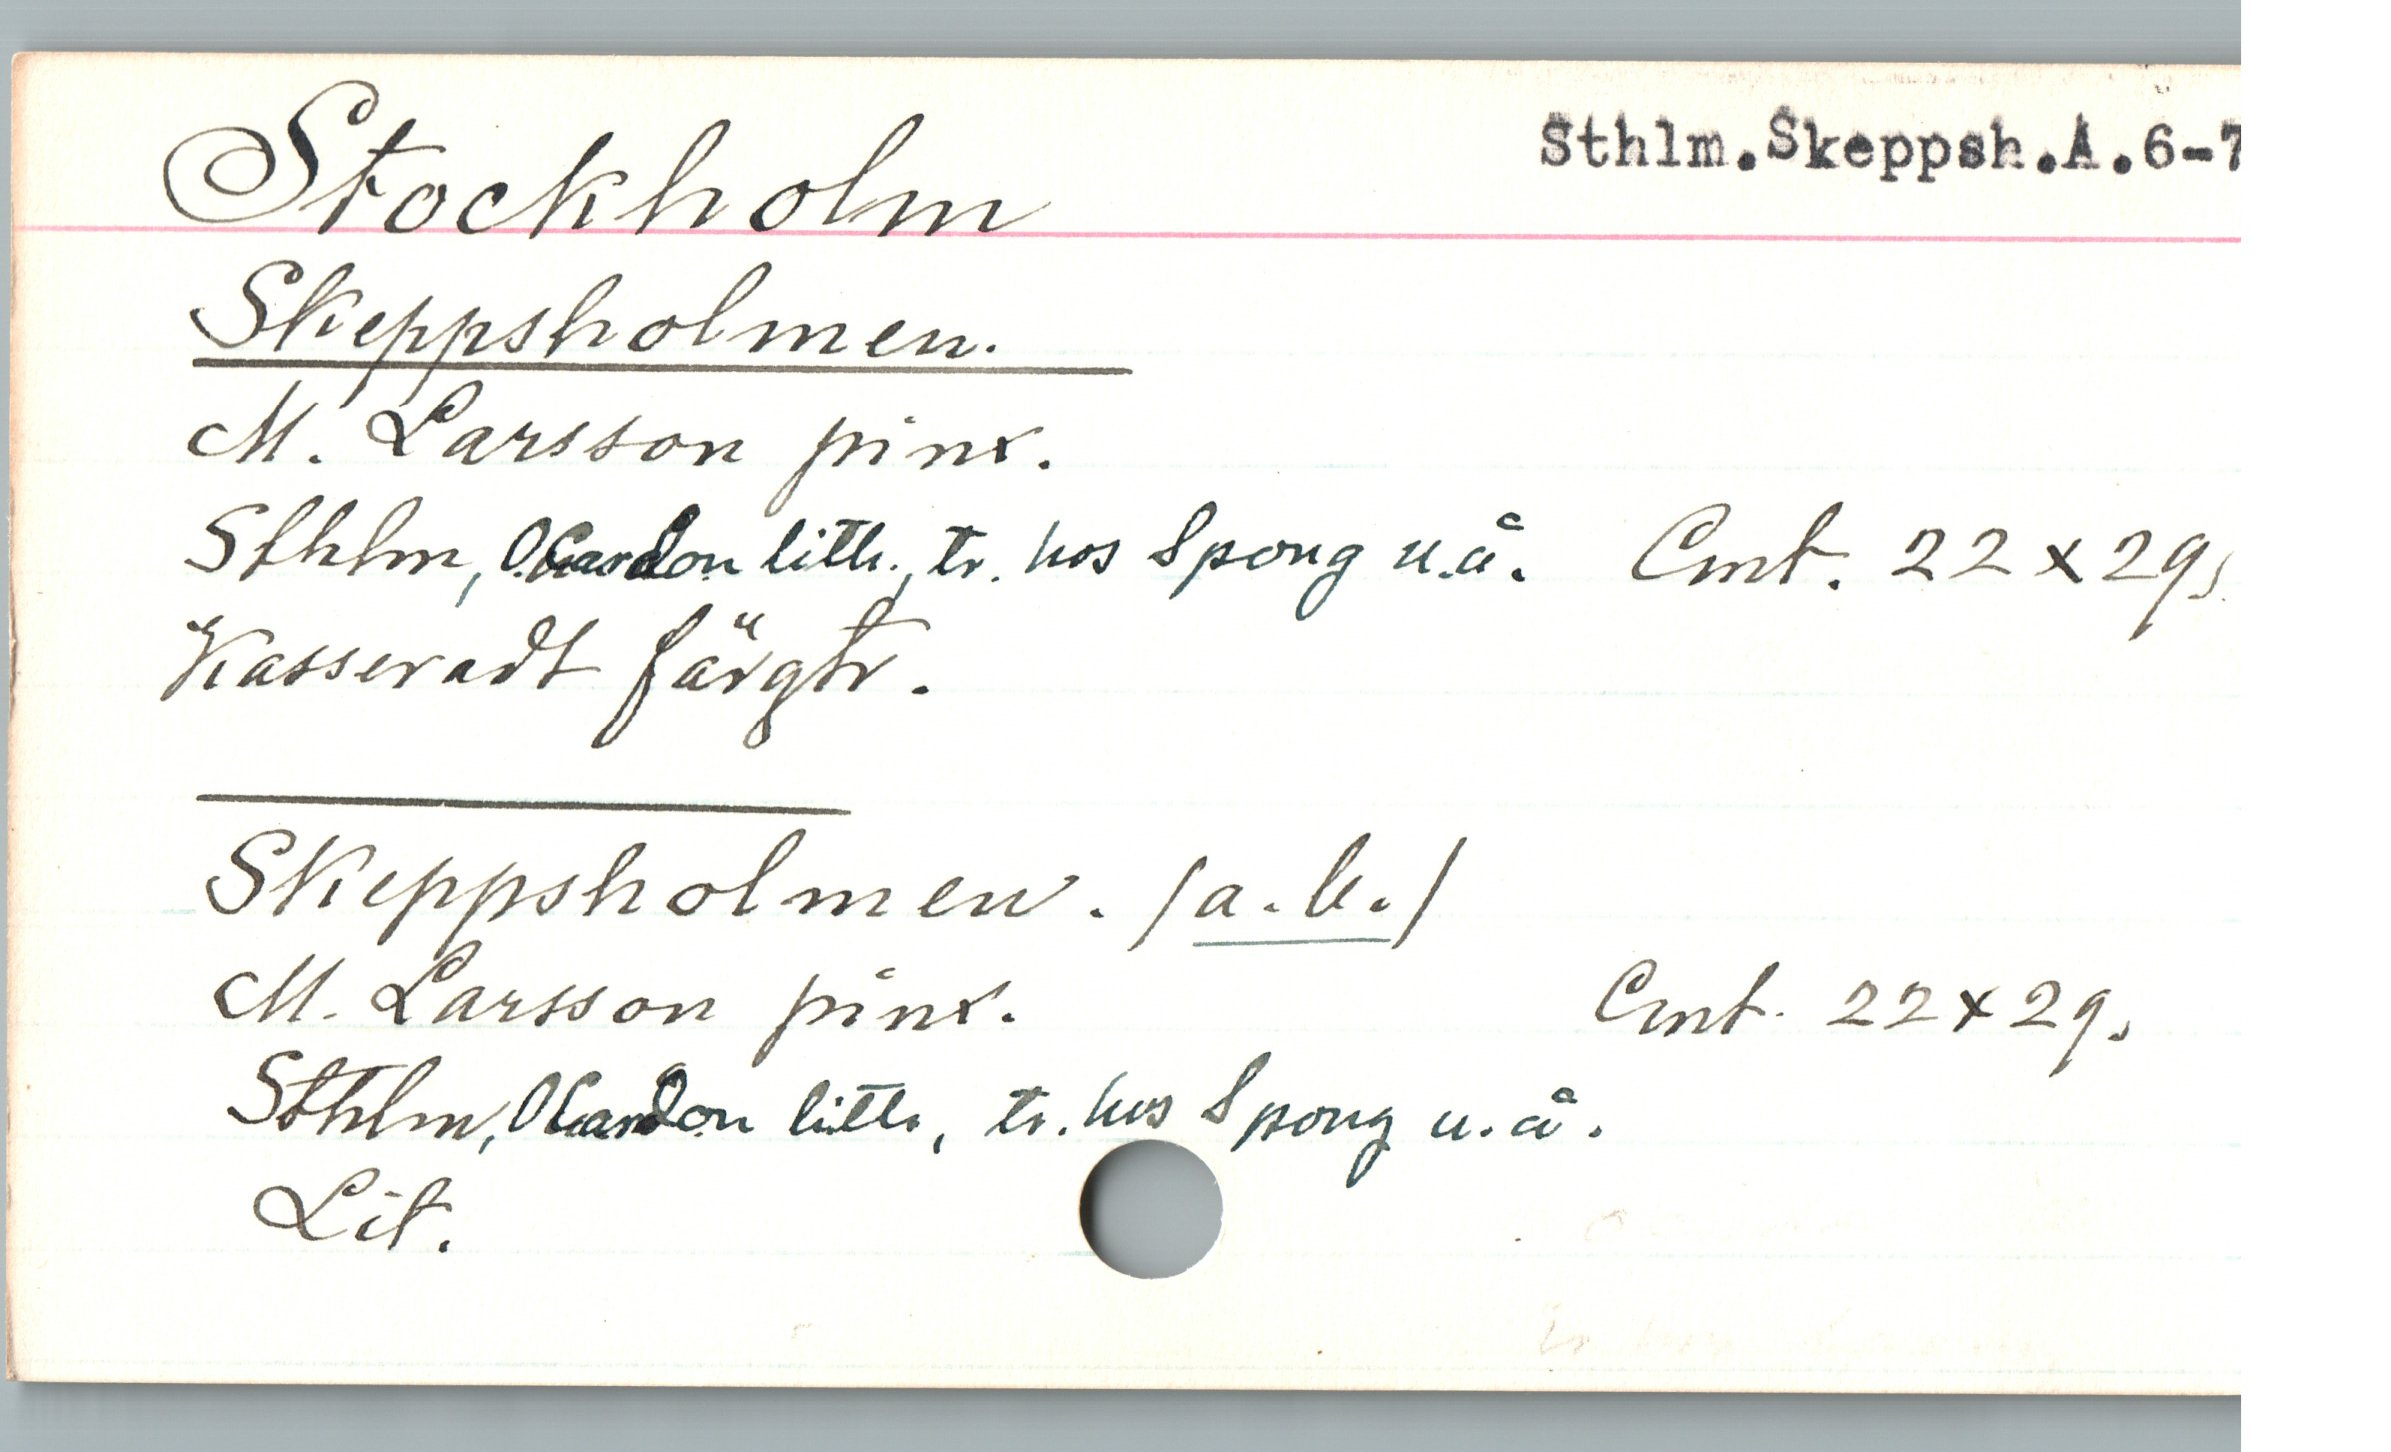 Stockholm
Sthlm.Skeppsh.A.6-7
Skeppsholmen.
M. Larsson pinx.
Sthlm, O Cardon lith., tr. hos Spong u.å. Cmt. 22 x 29,5.
Kasseradt färgtr.
Skeppsholmen. /a.b./
M. Larsson pinx. Cmt. 22 x 29,5
Sthlm, O Cardon lith, tr. hos Spong u.å.
Lit.